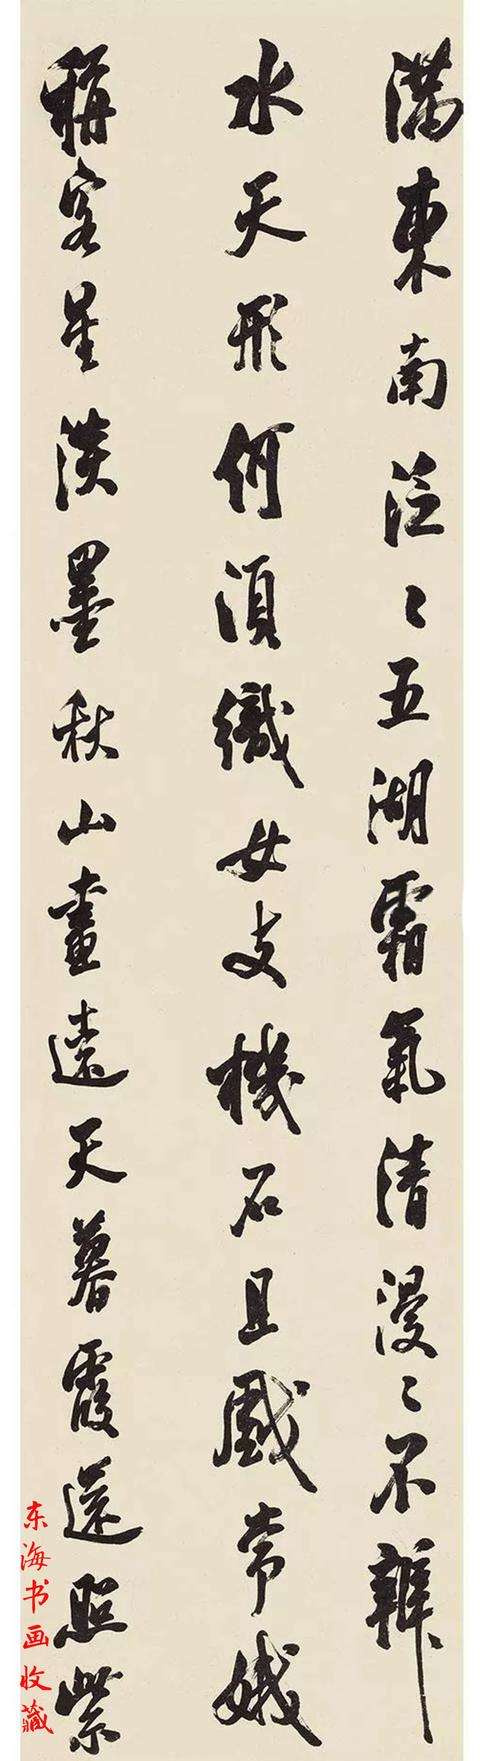 满東南泛〻五湖霜氣清漫〻不辨
水天形何須織女支機石且戲常娥
稱客星淡墨秋山畫遠天暮霞還照紫
东海书画收藏